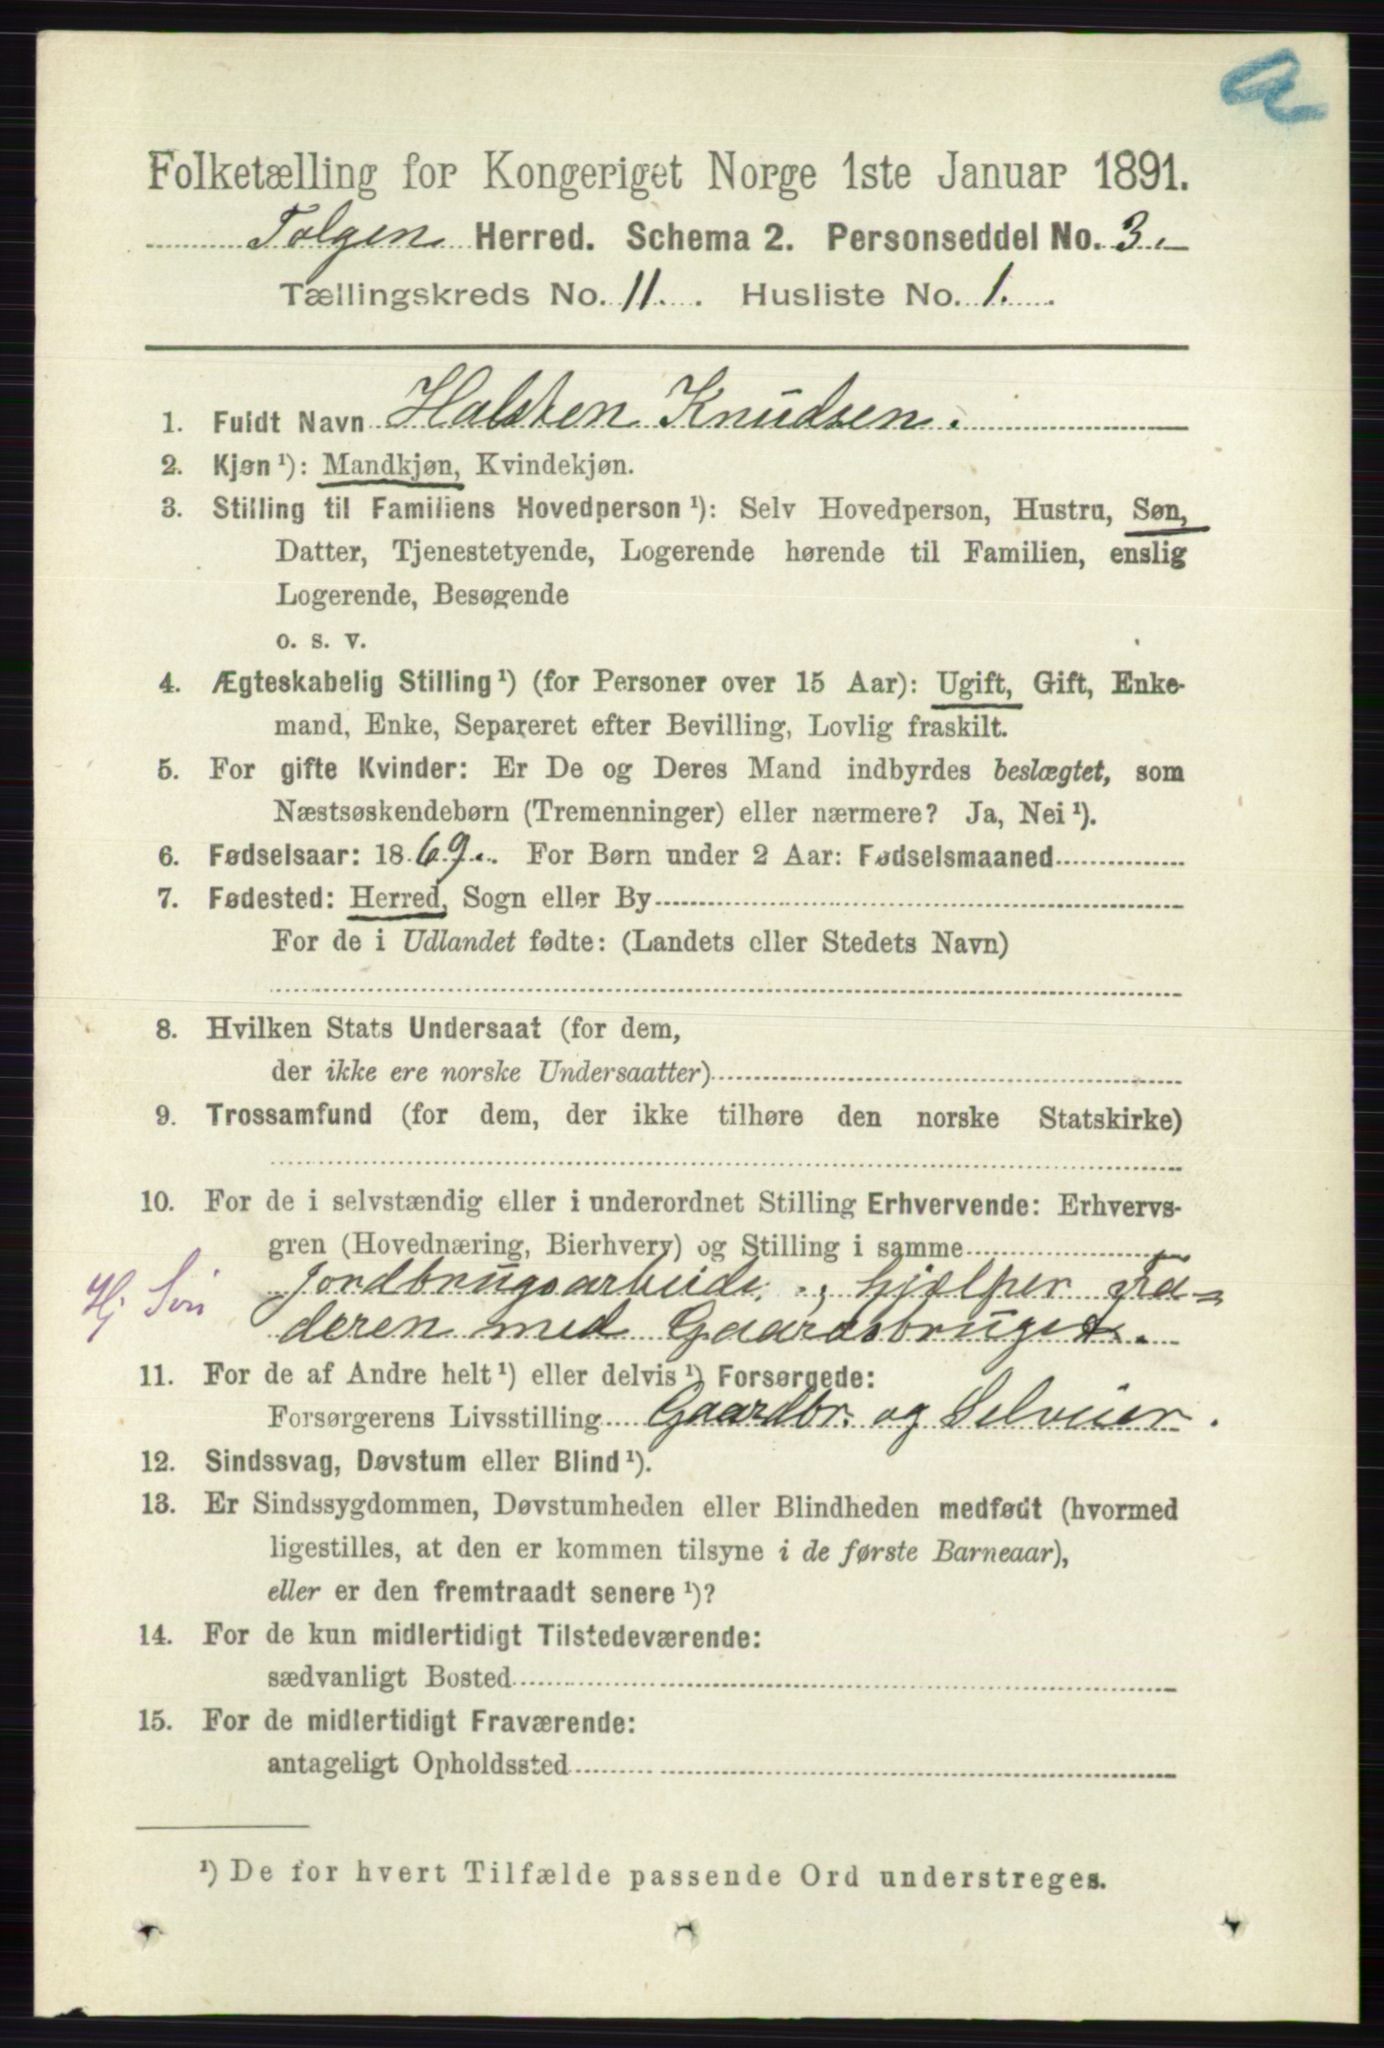 a
Folketælling for Kongeriget Norge 1ste Januar 1891.
Tolgen Herred. Schema 2. Personseddel No. 3.
Tællingskreds No. 11. Husliste No. 1.
1. Fuldt Navn Halsten Knudsen.
2. Kjøn¹): Mandkjøn, Kvindekjøn.
3. Stilling til Familiens Hovedperson¹): Selv Hovedperson, Hustru, Søn,
Datter, Tjenestetyende, Logerende hørende til Familien, enslig
Logerende, Besøgende
o. s. v.
4. Ægteskabelig Stilling¹) (for Personer over 15 Aar): Ugift, Gift, Enke-
mand, Enke, Separeret efter Bevilling, Lovlig fraskilt.
5. For gifte Kvinder: Er De og Deres Mand indbyrdes beslægtet, som
Næstsøskendebørn (Tremenninger) eller nærmere? Ja, Nei¹).
6. Fødselsaar: 1869. For Børn under 2 Aar: Fødselsmaaned
7. Fødested: Herred, Sogn eller By
For de i Udlandet fødte: (Landets eller Stedets Navn)
8. Hvilken Stats Undersaat (for dem,
der ikke ere norske Undersaatter)
9. Trossamfund (for dem, der ikke tilhøre den norske Statskirke)
10. For de i selvstændig eller i underordnet Stilling Erhvervende: Erhvervs-
gren (Hovednæring, Bierhverv) og Stilling i samme
Hj Søn Jordbrugsarbeide., hjælper Fa=
deren med Gaardsbruget.
11. For de af Andre helt¹) eller delvis¹) Forsørgede:
Forsørgerens Livsstilling Gaardbr. og Selveier.
12. Sindssvag, Døvstum eller Blind¹).
13. Er Sindssygdommen, Døvstumheden eller Blindheden medfødt (hvormed
ligestilles, at den er kommen tilsyne i de første Barneaar),
eller er den fremtraadt senere¹)?
14. For de kun midlertidigt Tilstedeværende:
sædvanligt Bosted
15. For de midlertidigt Fraværende:
antageligt Opholdssted
¹) De for hvert Tilfælde passende Ord understreges.